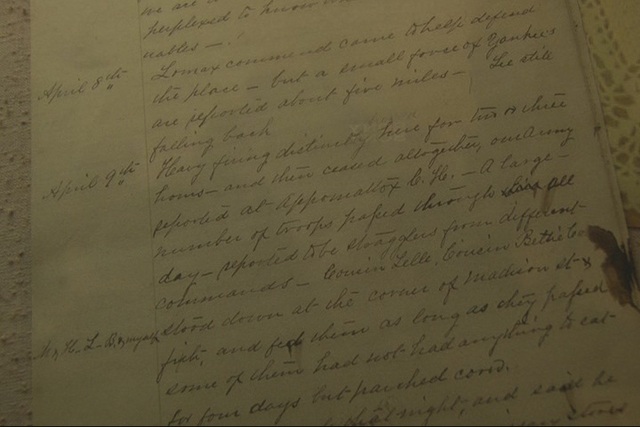 we are
perplexed to know
nables —
April 8th Lomax command came to help defend
the place — but a small force of Yankees
are reported about five miles — Lee still
falling back
April 9th Heavy firing distinctly here for two or three
hours — and then ceased altogether, our army
reported at Appomattox C. H. — A large
number of troops passed through all
day — reported to be stragglers from different
commands — Cousin Lelle, Cousin Bettie
H. L. B. & myself stood down at the corner of Madison st &
fish, and feed them as long as they passed
some of them had not had anything to eat
for four days but parched corn.
that night, and said he